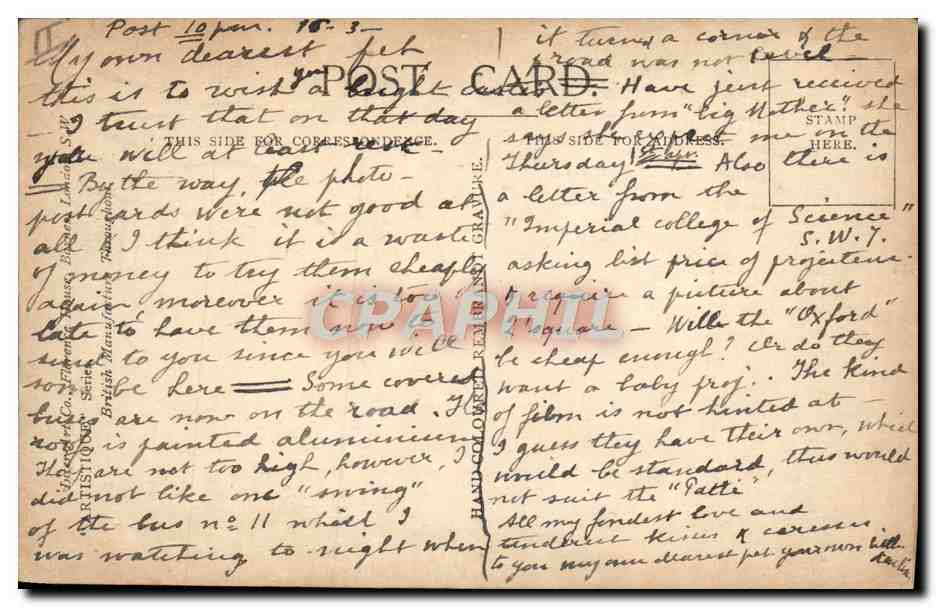 Post 10 pm. 16-3-
My own dearest pet
this is to wish you a bright
- I trust that on that day
you will at least
By the way, the photo-
post cards were not good at
all I think it is a waste
of money to try them cheaply
again moreover it is too
late to have them now to
send to you since you will
soon be here = Some covered
buses are now on the road. The
roof is painted aluminium
They are not too high, however, I
did not like one "swing"
of the bus no 11 which I
was watching to night when
it turned a corner & the
road was not level -
Have just received
a letter from "big Mother". she
says she expects me on the
Thursday Also there is
a letter from the
"Imperial college of Science"
S.W.7.
asking list price of projectene.
& require a picture about
2' square - Will the "Oxford"
be cheap enough? Or do they
want a baby proj. The kind
of film is not hinted at -
I guess they have their own, which
would be standard, thus would
not suit the "Pathé"
All my fondest love and
tenderest kisses & caresses
to you my own dearest pet your own
POST CARD.
THIS SIDE FOR CORRESPONDENCE.
THIS SIDE FOR ADDRESS.
STAMP
HERE.
HAND COLOURED REMBRANDT GRAVURE.
"ARTISTIQUE" Series
British Manufacture Throughout
House, London
CPAPHIL